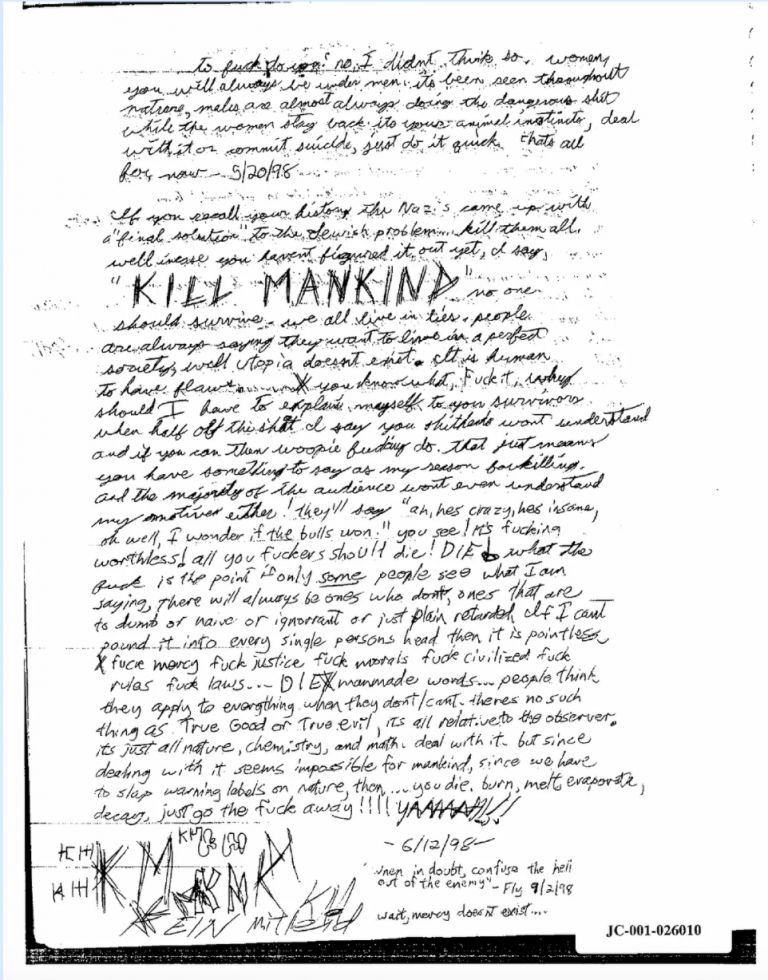 to fuck do you? no, I didnt think so. women,
you will always be under men. its been seen throughout
nature, males are almost always doing the dangerous shit
while the women stay back. its your animal instincts, deal
with it or commit suicide, just do it quick. thats all
for now - 5/20/98
If you recall your history the Nazis came up with
a "final solution" to the Jewish problem... kill them all.
well incase you havent figured it out yet, I say
"KILL MANKIND" no one
should survive. we all live in lies. people
are always saying they want to live in a perfect
society, well utopia doesnt exist. It is human
to have flaws... you know what, Fuck it, why
should I have to explain myself to you survivors
when half of this shit I say you shitheads wont understand
and if you can then woopie fucking do. that just means
you have something to say as my reason for killing.
and the majority of the audience wont even understand
my motives either! they'll say "ah, hes crazy, hes insane,
oh well, I wonder if the bulls won." you see! its fucking
worthless! all you fuckers should die! DIE! what the
fuck is the point if only some people see what I am
saying, there will always be ones who dont, ones that are
to dumb or naive or ignorrant or just plain retarded. If I cant
pound it into every single persons head then it is pointless
fuck mercy fuck justice fuck morals fuck civilized fuck
rules fuck laws... DIE manmade words... people think
they apply to everything when they dont/cant. theres no such
thing as True Good or True evil, its all relative to the observer.
its just all nature, chemistry, and math. deal with it. but since
dealing with it seems impossible for mankind, since we have
to slap warning labels on nature, then... you die. burn, melt, evaporate,
decay, just go the fuck away!!!! YAAAAAH!!
- 6/12/98 -
"when in doubt, confuse the hell
out of the enemy" - Fly 9/2/98
wait, mercy doesnt exist....
KM
KEIN MITLEID
JC-001-026010